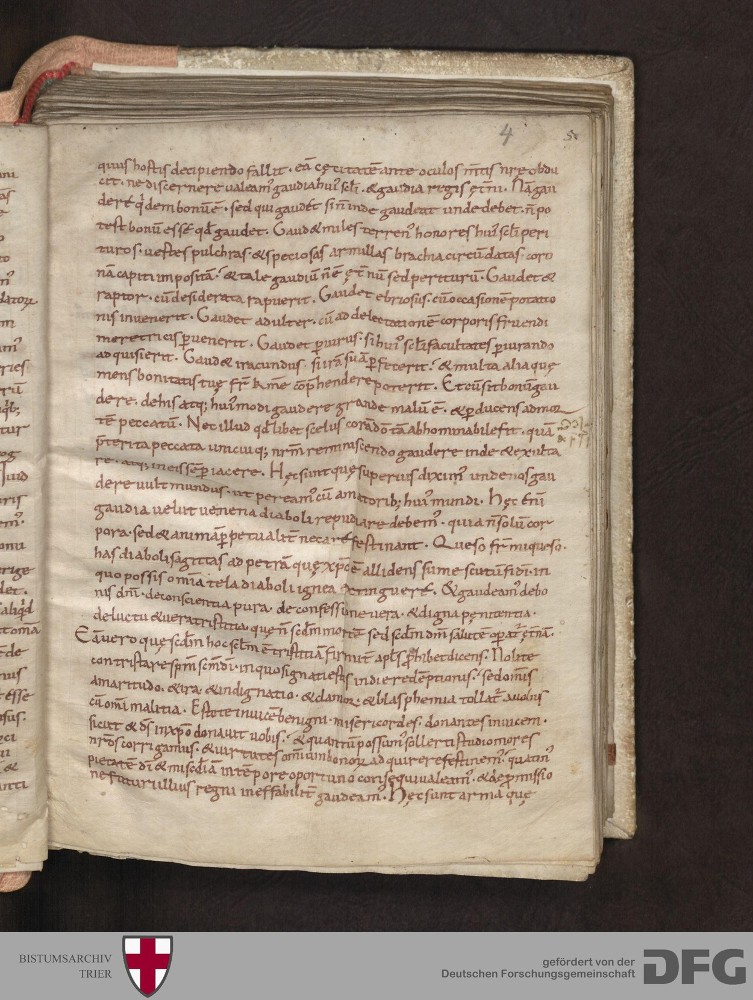 4 5
quus hostis decipiendo fallit · eā cęcitatē ante oculos m̄tis nr̄e obdu
cit · ne discernere ualeam᷒ gaudia hui᷒ sc̄li · & gaudia regis ęt̄ni · Nā gau
dere q̇dem bonū ē · sed qui gaud& si n̄ inde gaudeat unde debet · n̄ po
test bonū esse qđ gaudet · Gaud& miles terren᷒ honores hui᷒ sc̄li peri
turos · uestes pulchras · & speciosas armillas brachia circūdatas · coro
nā capiti impositā · & tale gaudiū n̄ ē ęt̄nū sed periturū · Gaudet &
raptor · cū desiderata rapuerit · Gaudet ebriosus · cū occasionē potatio
nis inuenerit · Gaudet adulter · cū ad delectationē corporis fruendi
meretricis ꝑuenerit · Gaudet ꝑiurus · si hui᷒ sc̄li facultates ꝑiurando
adquisierit · Gaud& iracundus · si irā suā ꝑfecerit · & multa alia quę
mens bonitatis tuę fr̄ kr̄me cōp̄hendere poterit · Et cū sit bonū gau
dere · de his atq; hui᷒modi gaudere grande malū ē · & ꝑducens ad mor
tē peccatū · Nec illud qđ libet scelus corā dō tā abhominabile fit · quā
p̄terita peccata unicuiq; nr̄m reminiscendo gaudere inde & exulta
re · atq; in eis semꝑ iacere · Hęc sunt quę superius dixim᷒ unde nos gau
dere uult mundus · ut peream᷒ cū amatorib; hui᷒ mundi · Hęc eni
gaudia uelut uenena diaboli repudiare debem᷒ · quia n̄ solū cor
pora · sed & animā ꝑpetualit̄ necare festinant · Queso fr̄ mi queso ·
has diaboli sagittas ad petrā quę xp̄c ē allidens sume scutū fidi · in
quo possis om̄ia tela diaboli ignea extinguere · & gaudeam᷒ de bo
nis dn̄i · de conscientia pura · de confessione uera · & digna penitentia ·
de luctu & uera tristitia · quę n̄ scđm mortē sed scđm dm̄ salutē oꝑat᷒ ęt̄nā ·
Ea uero quę scđm hoc sclm̄ ē tristitiā firmit̄ apl̄s ꝓhibet dicens · Nolite
contristare sp̄m sc̄m di · in quo signati estis in die redemptionis · sed omis
amaritudo · & ira · & indignatio · & clamor · & blasphemia tollat᷒ a uobis
cū om̄i malitia · Estote inuicē benigni · misericordes · donantes inuicem ·
sicut & ds̄ in xp̄o donauit uobis · & quantū possum᷒ sollerti studio mores
nr̄os corrigamus · & uirtutes om̄iū bonorū adquirere festinem᷒ · quatin᷒
pietatē di & misc̄diā in tēpore oportuno consequi ualeam᷒ · & de ꝓmissio
ne futuri illius regni ineffabilit̄ gaudeam᷒ · Hęc sunt arma quę
BISTUMSARCHIV
TRIER
gefördert von der
Deutschen Forschungsgemeinschaft
DFG